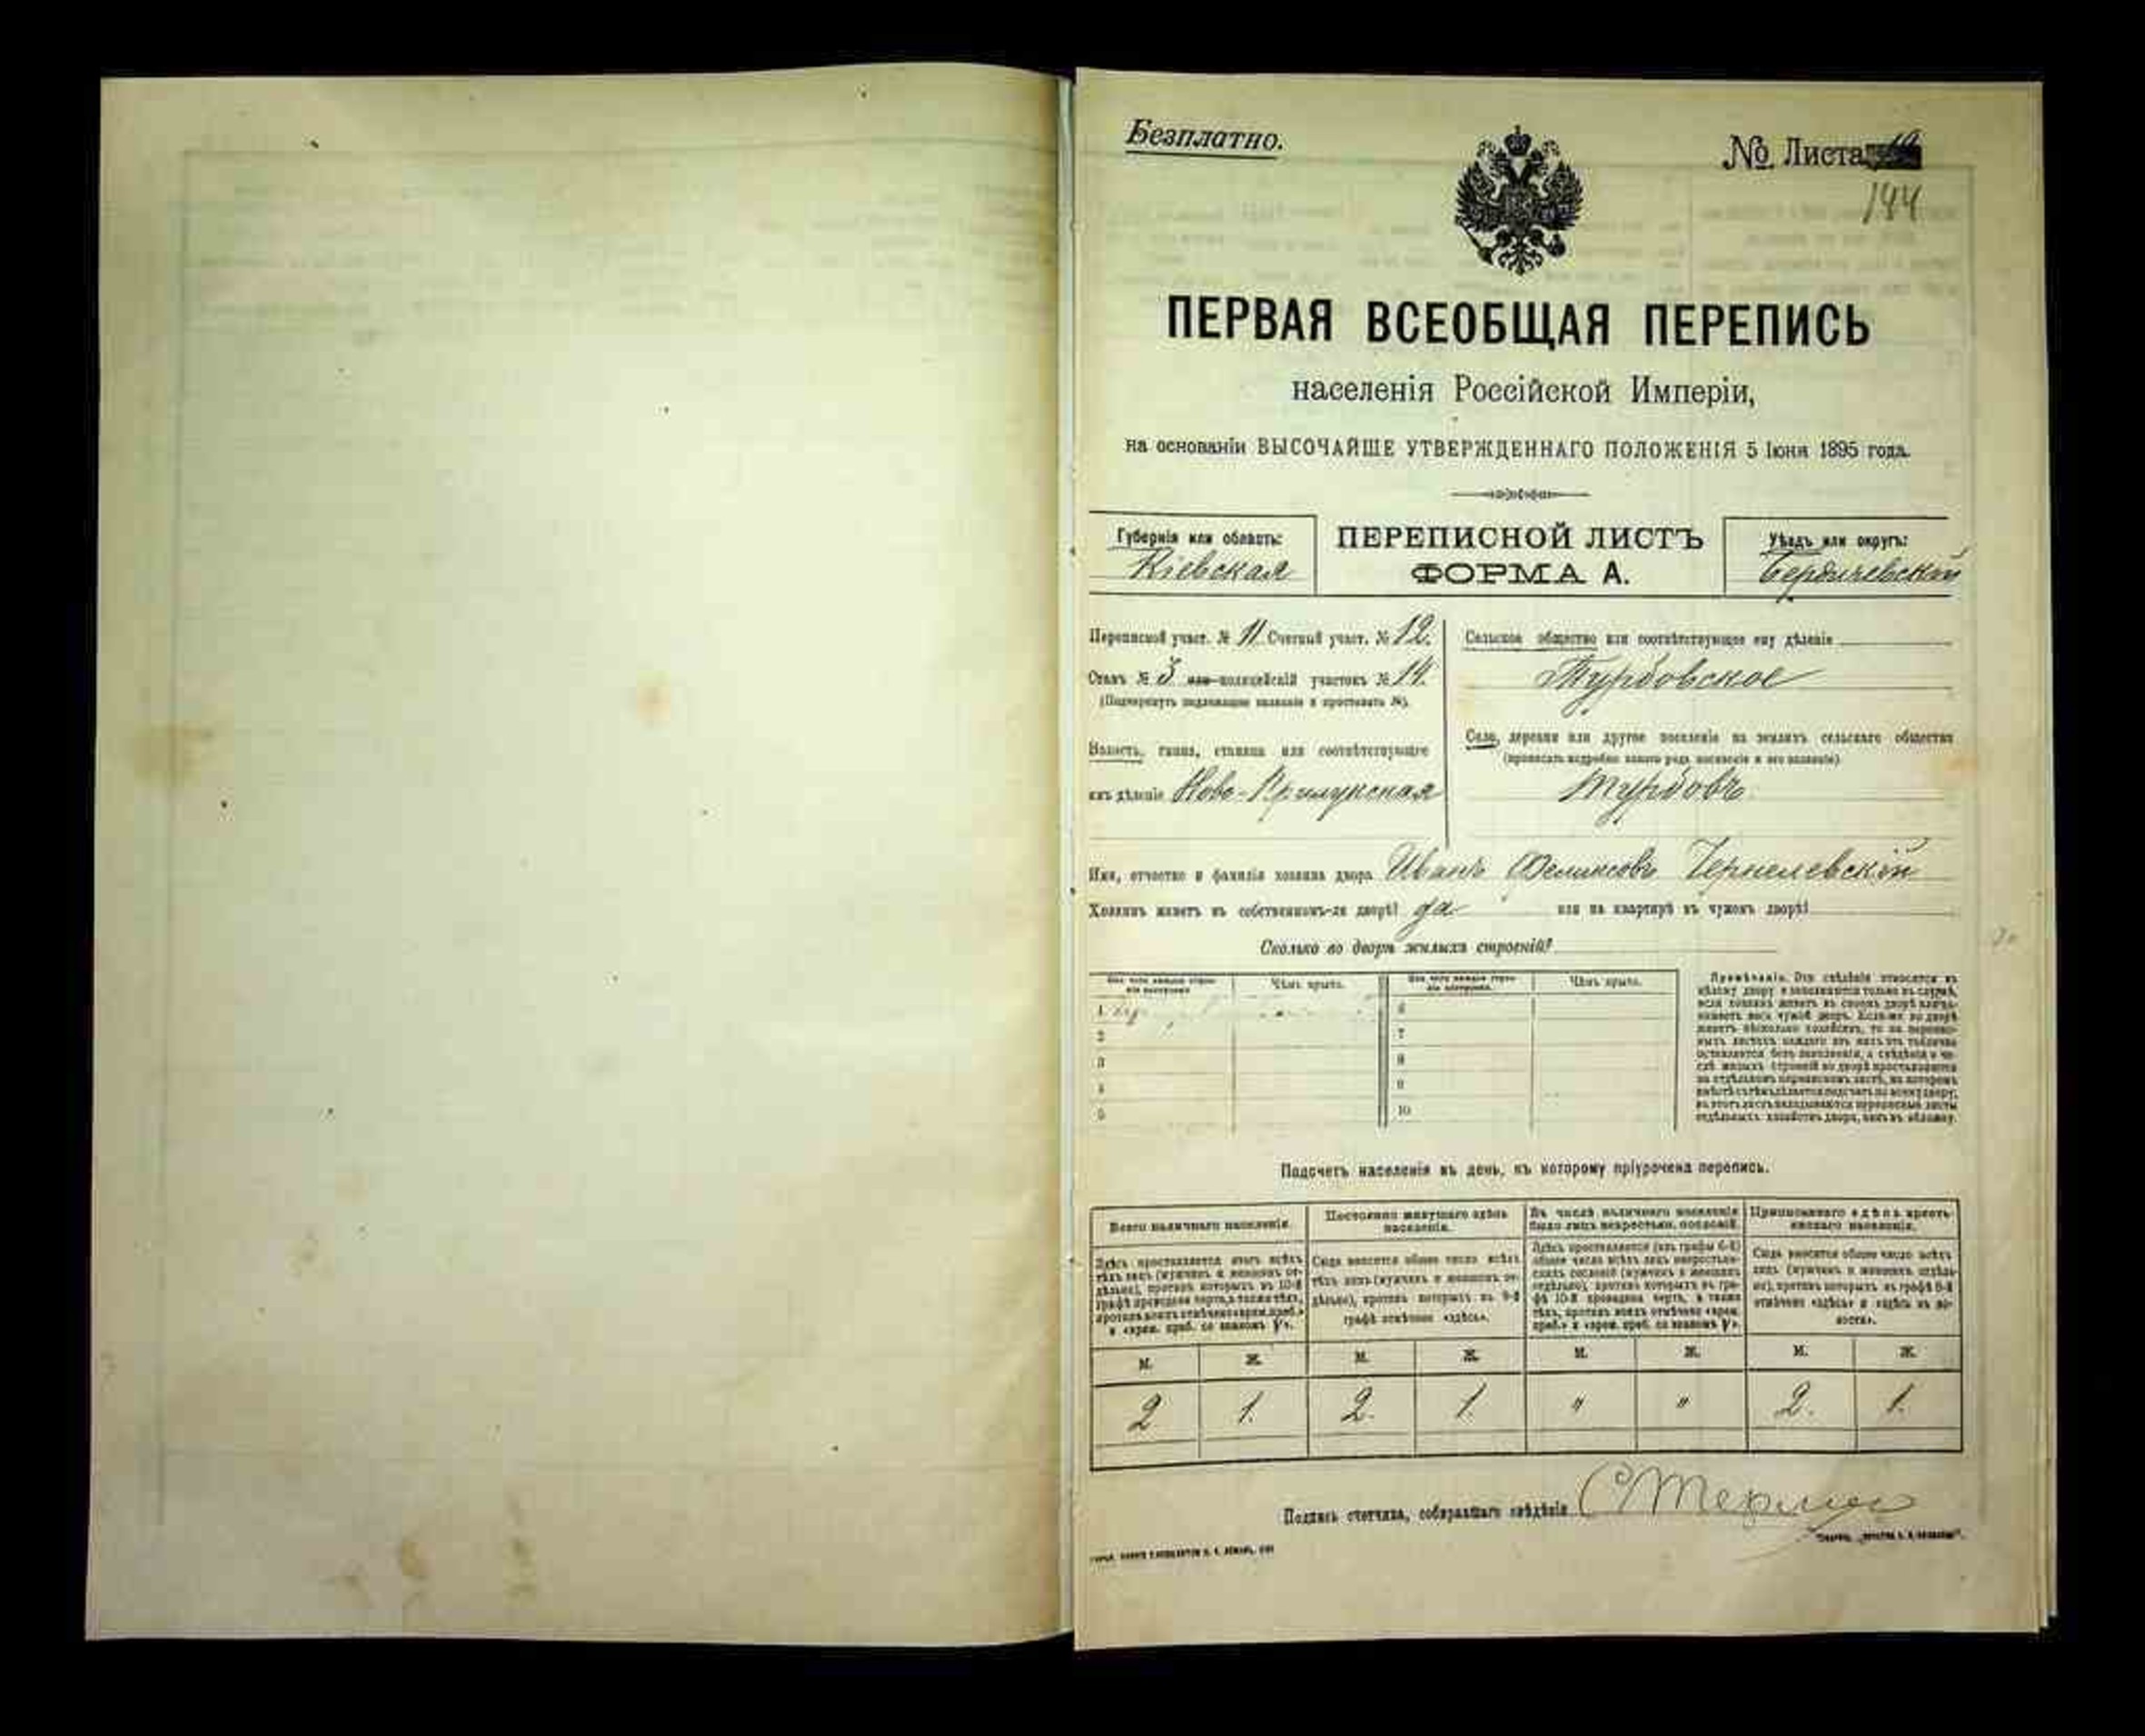 Безплатно.
№ Листа
144
ПЕРВАЯ ВСЕОБЩАЯ ПЕРЕПИСЬ
населенія Россійской Имперіи,
на основаніи ВЫСОЧАЙШЕ УТВЕРЖДЕННАГО ПОЛОЖЕНІЯ 5 Іюня 1895 года.
Губернія или область:
Кіевская
ПЕРЕПИСНОЙ ЛИСТЪ
ФОРМА А.
Уѣздъ или округъ:
Бердичевскій
Переписной участ. № 11. Счетный участ. № 12.
Станъ № 3 или полицейскій участокъ № 14.
(Подчеркнуть надлежащее названіе и проставить №).
Волость, гмина, станица или соотвѣтствующее
имъ дѣленіе Ново-Прилукская
Сельское общество или соотвѣтствующее ему дѣленіе
Турбовское
Село, деревня или другое поселеніе на земляхъ сельскаго общества
(прописать подробно какого рода поселеніе и его названіе)
Турбовъ
Имя, отчество и фамилія хозяина двора Иванъ Феликсовъ
Хозяинъ живетъ въ собственномъ-ли дворѣ? да или на квартирѣ въ чужомъ дворѣ?
Сколько во дворѣ жилыхъ строеній?
Чѣмъ крыто.
Чѣмъ крыто.
1
6
2
7
3
8
4
9
5
10
Примѣчаніе. Эти свѣдѣнія относятся къ
цѣлому двору и заполняются только въ случаѣ,
если хозяинъ живетъ въ своемъ дворѣ или за-
нимаетъ весь чужой дворъ. Если-же во дворѣ
живетъ нѣсколько хозяйствъ, то на перепис-
ныхъ листахъ каждаго изъ нихъ эта табличка
оставляется безъ заполненія, а свѣдѣнія о чи-
слѣ жилыхъ строеній во дворѣ проставляются
на отдѣльномъ переписномъ листѣ, на которомъ
вмѣстѣ съ тѣмъ дѣлается подсчетъ по всему двору;
въ этотъ листъ вкладываются переписные листы
отдѣльныхъ хозяйствъ двора, какъ въ обложку.
Подсчетъ населенія въ день, къ которому пріурочена перепись.
Всего наличнаго населенія.
Здѣсь проставляется итогъ всѣхъ
тѣхъ лицъ (мужчинъ и женщинъ от-
дѣльно), противъ которыхъ въ 10-й
графѣ проведена черта, а также тѣхъ,
противъ коихъ отмѣчено «врем. преб.»
и «врем. преб. со знакомъ V».
Постоянно живущаго здѣсь
населенія.
Сюда вносится общее число всѣхъ
тѣхъ лицъ (мужчинъ и женщинъ от-
дѣльно), противъ которыхъ въ 9-й
графѣ отмѣчено «здѣсь».
Въ числѣ наличнаго населенія
было лицъ некрестьян. сословій.
Здѣсь проставляется (изъ графы 6-й)
общее число всѣхъ лицъ некрестьян-
скихъ сословій (мужчинъ и женщинъ
отдѣльно), противъ которыхъ въ гра-
фѣ 10-й проведена черта, а также
тѣхъ, противъ коихъ отмѣчено «врем.
преб.» и «врем. преб. со знакомъ V».
Приписаннаго здѣсь кресть-
янскаго населенія.
Сюда вносится общее число всѣхъ
лицъ (мужчинъ и женщинъ отдѣль-
но), противъ которыхъ въ графѣ 8-й
отмѣчено «здѣсь» и «здѣсь въ во-
лости».
М. Ж. М. Ж. М. Ж. М. Ж.
2 1. 2. 1. " " 2. 1.
Подпись счетчика, собиравшаго свѣдѣнія